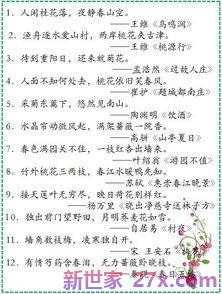 1. 人闲桂花落，夜静春山空。
——王维《鸟鸣涧》
2. 渔舟逐水爱山村，两岸桃花夹古津。
——王维《桃源行》
3. 待到重阳日，还来就菊花。
——孟浩然《过故人庄》
4. 人面不知何处去，桃花依旧笑春风。
——崔护《题城都南庄》
5. 采菊东篱下，悠然见南山。
——陶渊明《饮酒》
6. 水晶帘动微风起，满架蔷薇一院香。
——高骈《山亭夏日》
7. 春色满园关不住，一枝红杏出墙来。
——叶绍翁《游园不值》
8. 竹外桃花三两枝，春江水暖鸭先知。
——苏轼《惠崇春江晓景》
9. 接天莲叶无穷碧，映日荷花别样红。
——杨万里《晓出净慈寺送林子方》
10. 独出前门望野田，月明荞麦花如雪。
——白居易《村夜》
11. 墙角数枝梅，凌寒独自开。
——宋 王安石《梅
12. 有情芍药含春泪，无力蔷薇卧晓枝。
——秦观《春日五
新世家 27x.com